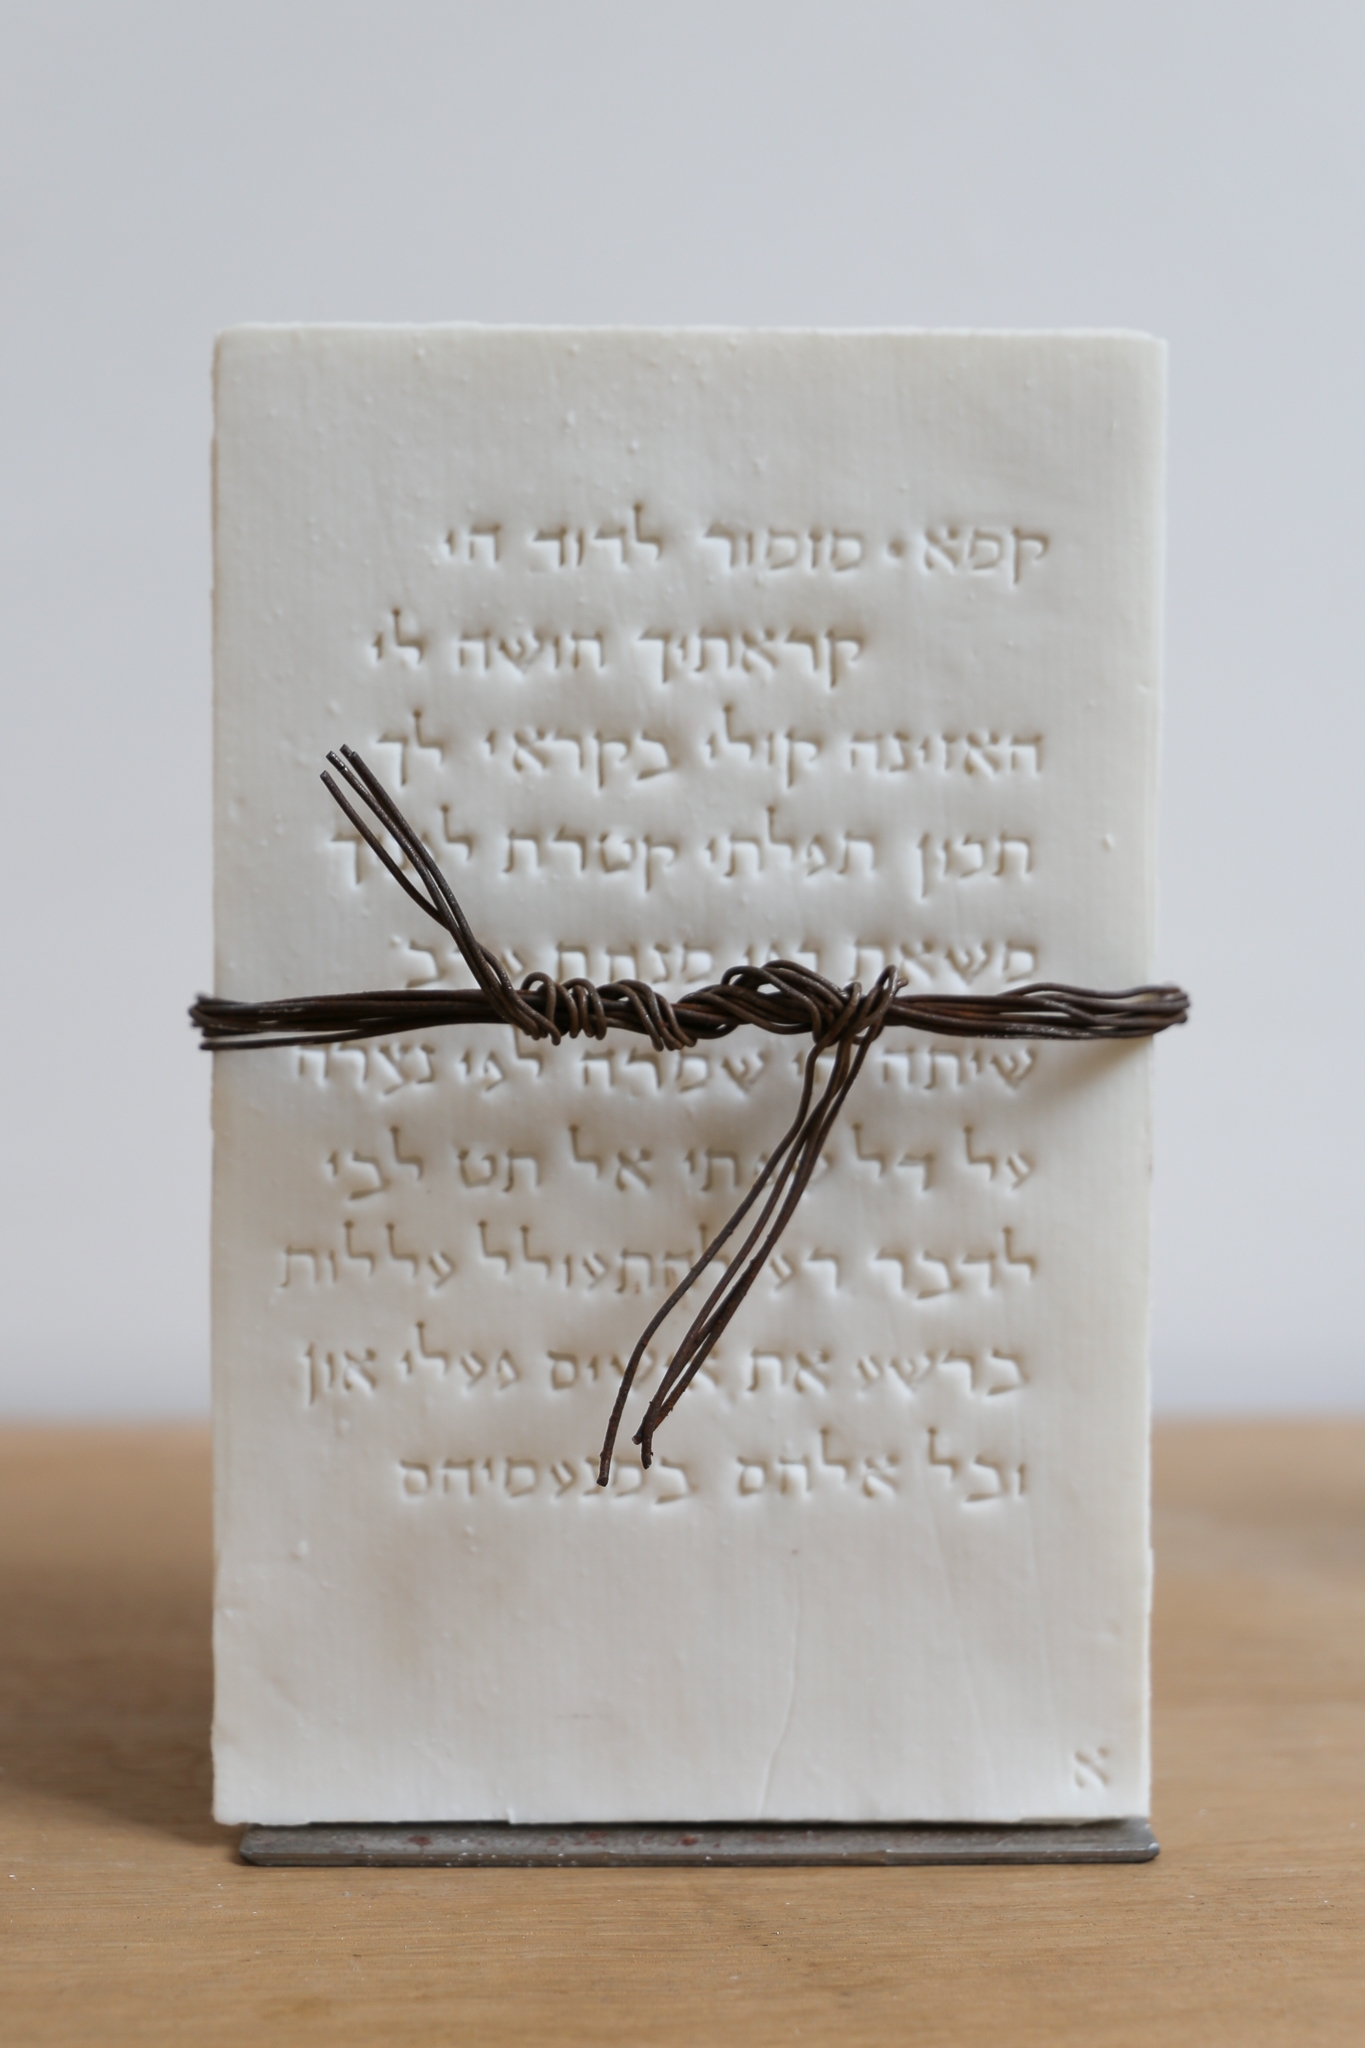 קמא· מזמור לדוד הי
קראתיך חושה לי
האזינה קולי בקראי לך
תכון תפלתי קטרת לפניך
משאת כפי מנחת ערב
שיתה הי שמרה לפי נצרה
על דל שפתי אל תט לבי
לדבר רע להתעולל עללות
ברשע את אישים פעלי און
ובל אלהם במנעמיהם
א